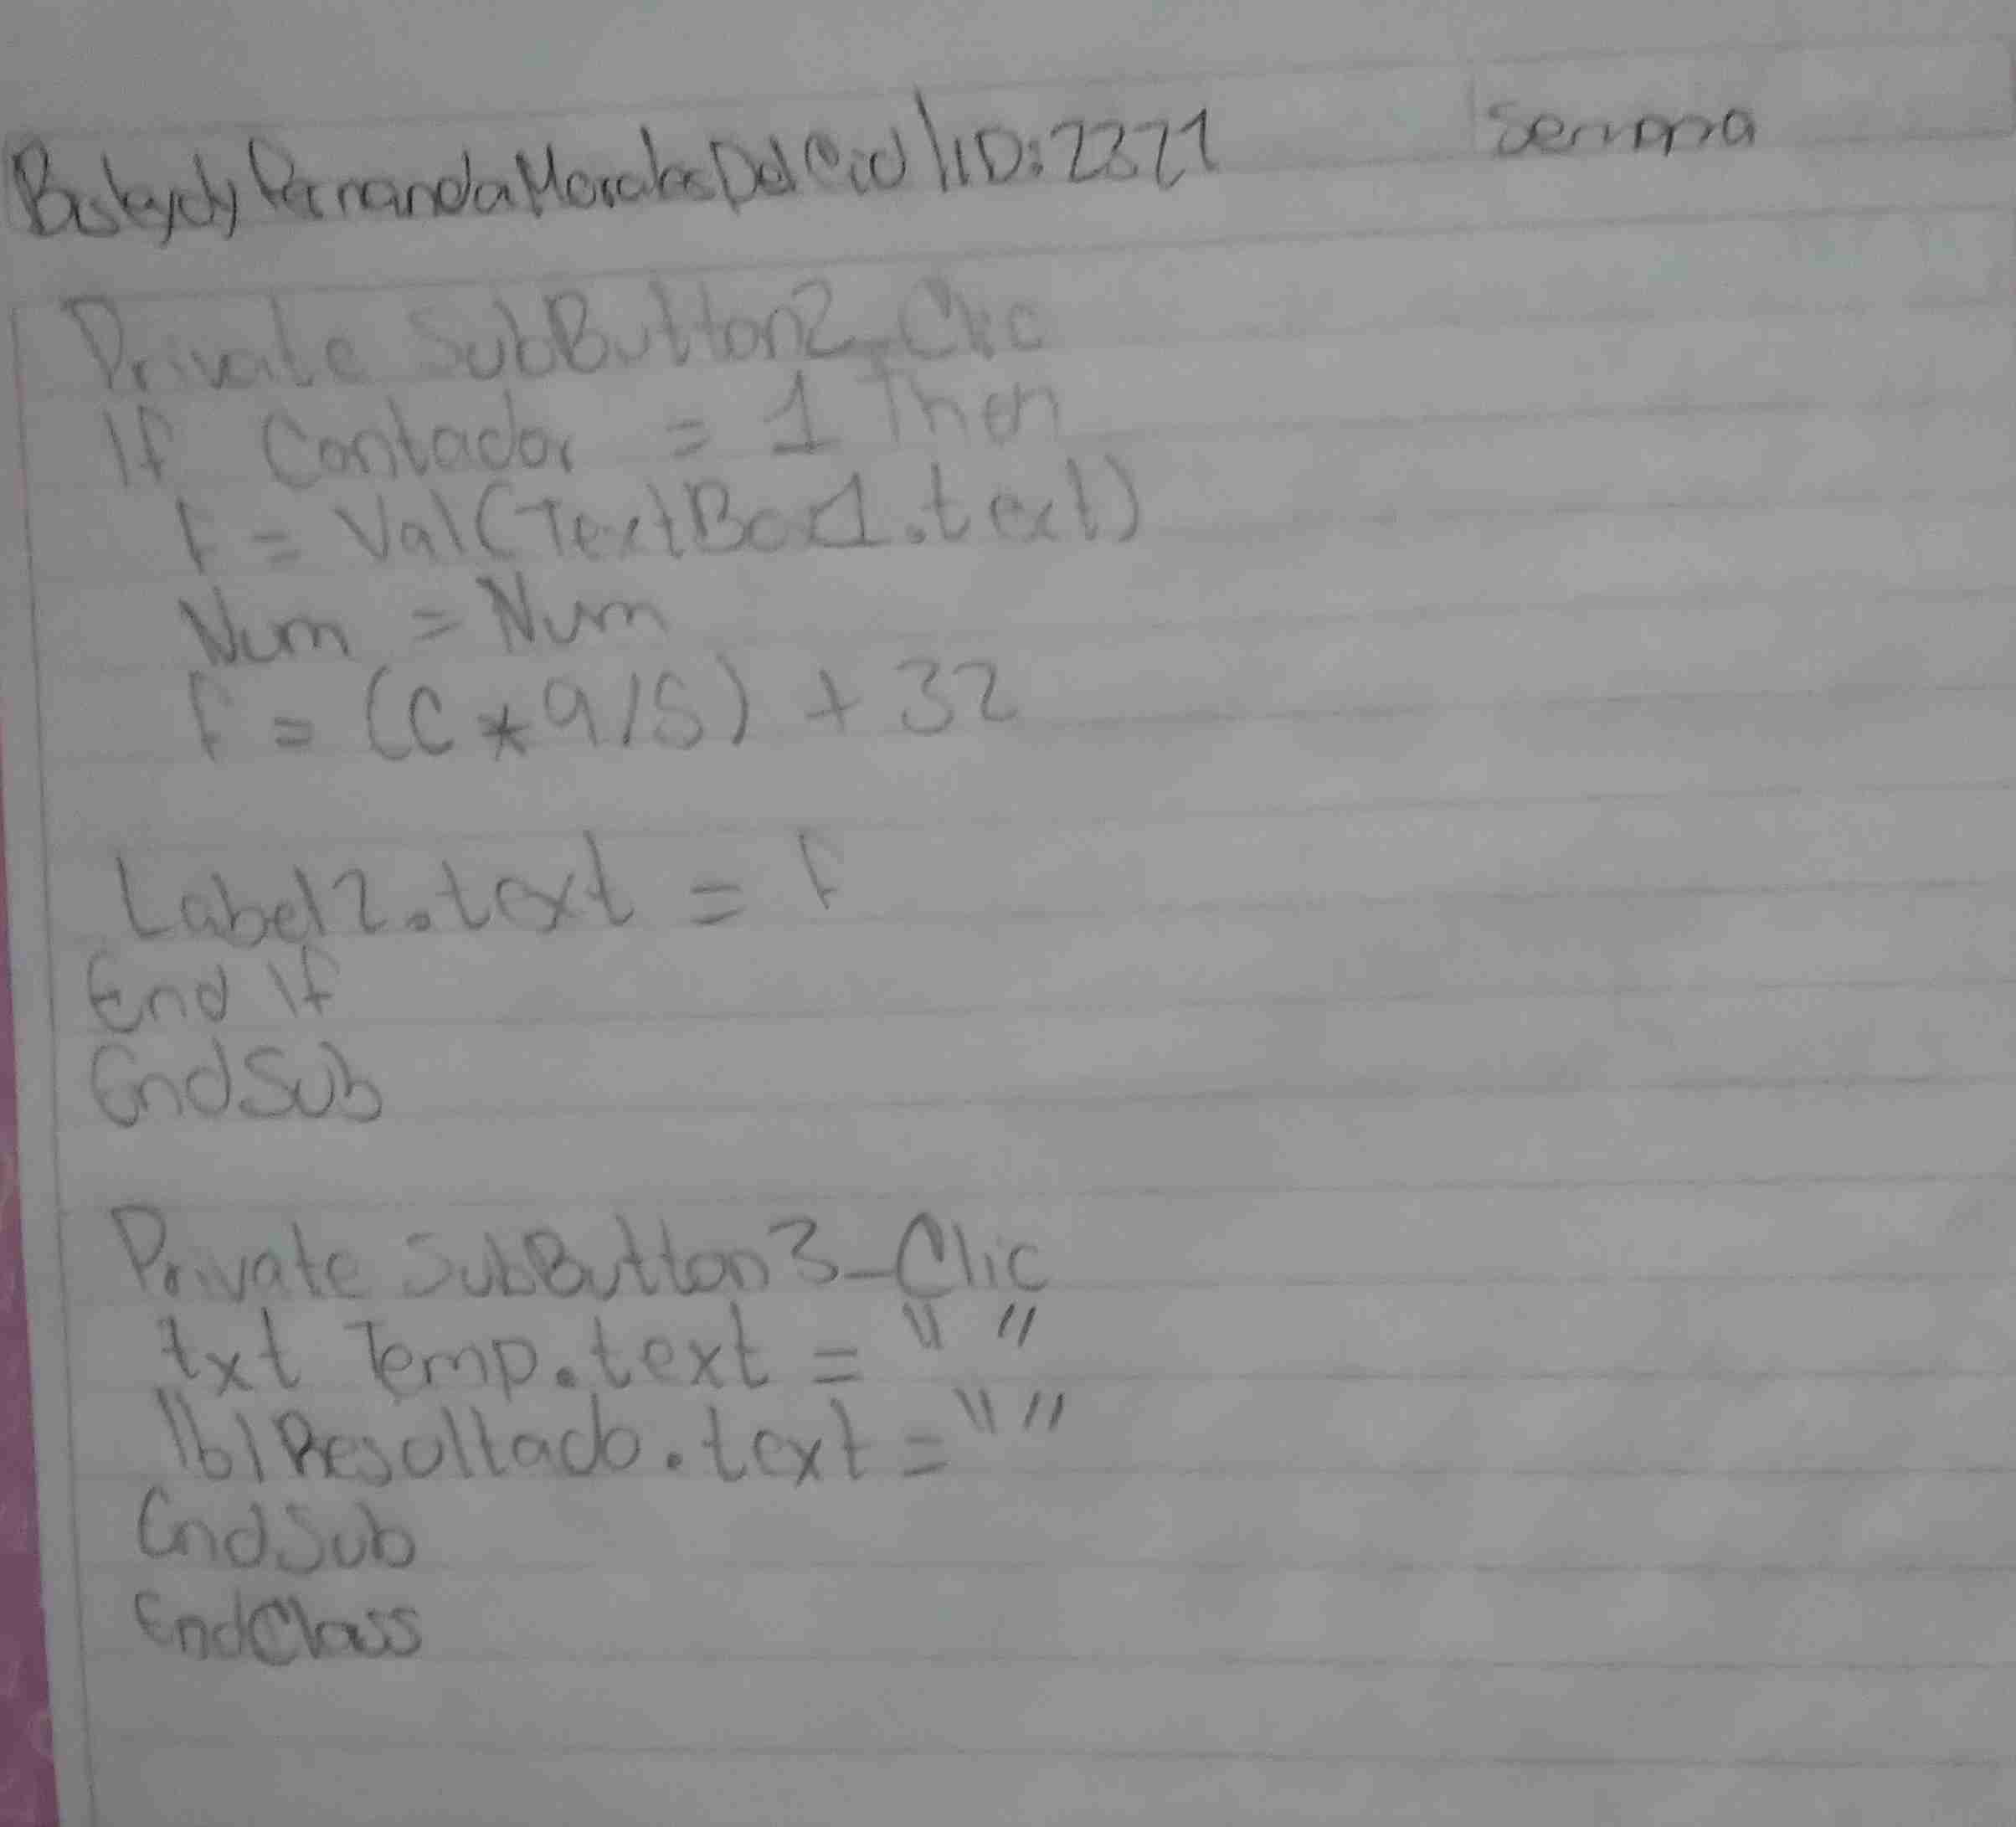 Fernanda Morales Del Cid | ID: 2271
Private SubButton2_Clic
If Contador = 1 Then
F = Val(TextBox1.text)
Num = Num
F = (C * 9/5) + 32
Label2.text = F
End If
EndSub
Private SubButton3_Clic
txt Temp.text = " "
lblResultado.text = " "
EndSub
EndClass